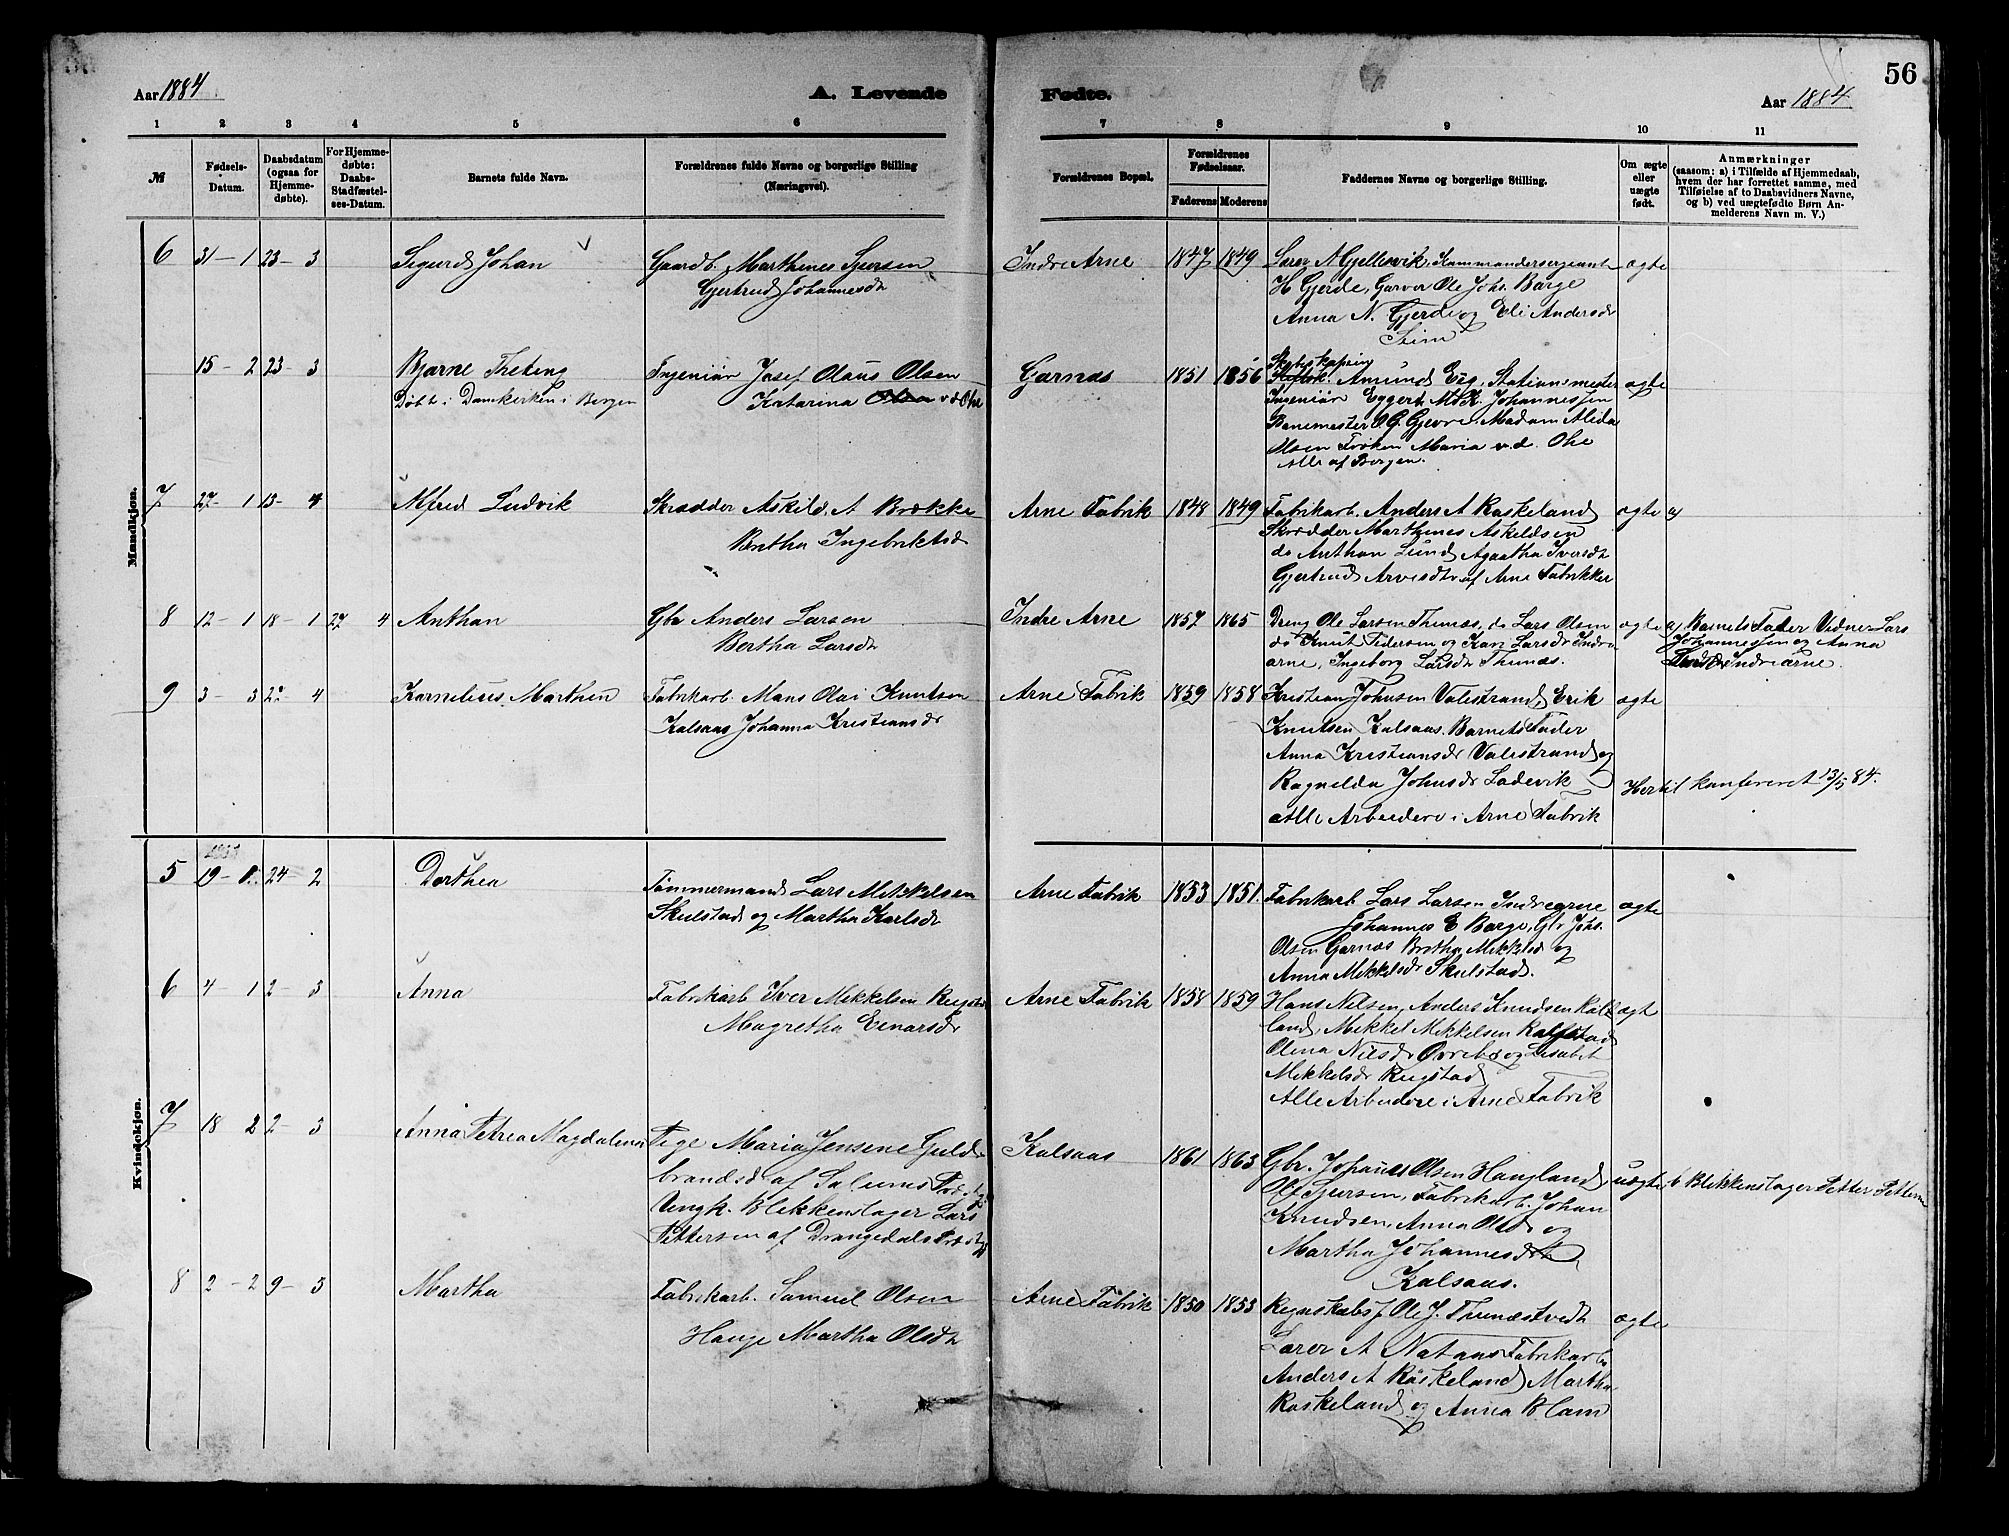 56
Aar 1884
A. Levende
Fødte.
Aar 1884
1 2 3 4 5 6
7 8 9 10 11
№
Fødsels-
Datum.
Daabsdatum
(ogsaa for
Hjemme-
døbte).
For Hjemme-
døbte:
Daabs-
Stadfæstel-
ses-Datum.
Barnets fulde Navn.
Forældrenes fulde Navne og borgerlige Stilling
(Næringsvei).
Forældrenes Bopæl.
Forældrenes
Fødselsaar.
Faderens Moderens
Faddernes Navne og borgerlige Stilling.
Om ægte
eller
uægte
født.
Anmærkninger
(saasom: a) i Tilfælde af Hjemmedaab,
hvem der har forrettet samme, med
Tilføielse af to Daabsvidners Navne,
og b) ved uægtefødte Børn An-
melderens Navn m. V.)
Mandkjøn.
6 31 - 1 23 - 3 Sigurd Johan
Gaardb. Marthines Sjursen
Gjertrud Johannesdr
Indre Arne 1847 1849
Lærer A Gjellesvik, Kommandersergeant
H Gjerde, Garver Ole Johs. Borge
Anna N. Gjerde og Eli Andersdr
Seim
ægte
15 - 2 23 - 3 Bjarne Theting
Døbt i Domkirken i Bergen
Ingeniør Josef Olaus Olsen
Katarina Olsen v d Ohe
Garnæs 1851 1856
Skibskaptein
Amund Eeg, Stationsmester
Ingeniør Eggert, M.K. Johannessen
Banemester O G. Gjevre, Madam Alida
Olsen Frøken Maria v. d. Ohe
Alle af Bergen.
ægte
7 27 - 1 13 - 4 Alfred Ludvik
Skrædder Askild A Brække
Bertha Ingebriktsdr
Arne Fabrik 1848 1849
Fabrikarb. Anders A Roskeland
Skrædder Marthines Askildsen
do Anthon Lund Agaatha Iversdr
Gjertrud Arvesdtr af Arne Fabrikker
ægte a)
8 12 - 1 18 - 1 27 4 Anthon
Gbr Anders Larsen
Bertha Larsdr
Indre Arne 1857 1865
Dreng Ole Larsen Thunæs, do Lars Olsen
do Knut Pedersen og Kari Larsdr Indre
arne, Ingeborg Larsdr Thunæs.
ægte
a) Barnets Fader Vidner Lars
Johannessen og Anna
Indrearne.
9 3 - 3 2 4 Kornelius Marthin
Fabrikarb. Mons Olai Knutsen
Kalsaas Johanna Kristiansdr
Arne Fabrik 1859 1858
Kristian Johnsen Valestrand, Erik
Knutsen Kalsaas. Barnets Fader
Anna Kristiansdr Valestrand og
Ragnilda Johnsdr Ladevik
Alle Arbeidere i Arne Fabrik
ægte
Hertil konfereret 13/5 84.
Kvindekjøn.
5 19 - 24 - 2 Dorthea
Tømmermand Lars Mikkelsen
Skulstad og Martha Karlsdr
Arne Fabrik 1853 1851.
Fabrikarb Lars Larsen Indrearne
Johannes E Borge, Gbr Johs.
Olsen Garnæs Brethe Mikkelsd og
Anna Mikkelsdr Skulstad.
ægte
6 4 - 1 2 - 3 Anna
Fabrikarb Iver Mikkelsen Rugstad
Magretha Einarsdr
Arne Fabrik 1858 1859
Hans Nilsen, Anders Knudsen Rød
land, Mikkel Mikkelsen
Olina Nilsdr Øvrebø og Lisabet
Mikkelsdr Rugstad
Alle Arbeidere i Arne Fabrik
ægt
7 18 2 2 - 3 Anna Petrea Magdalena
Pige Maria Jensene Guld
brandsd af Solums Præstegj.
Ungk. Blikkenslager Lars
Pettersen af Drangedals Præstegj
Kalsaas 1861 1863
Gbr. Johanes Olsen Haugland,
Ole Sjursen, Fabrikarb. Johan
Knudsen, Anna Olsdr og
Martha Johannesdr
Kalsaas.
uægte b Blikkenslager Petter Pettersen
8 2 - 2 9 - 3 Martha
Fabrikarb. Samuel Olsen
Hauge Martha Olsdtr
Arne Fabrik 1850 1853
Regnskabsf Ole J. Thunæstvedt
Lærer A Natans Fabrikarb
Anders A Roskeland Martha
Roskeland og Anna Blom
ægte